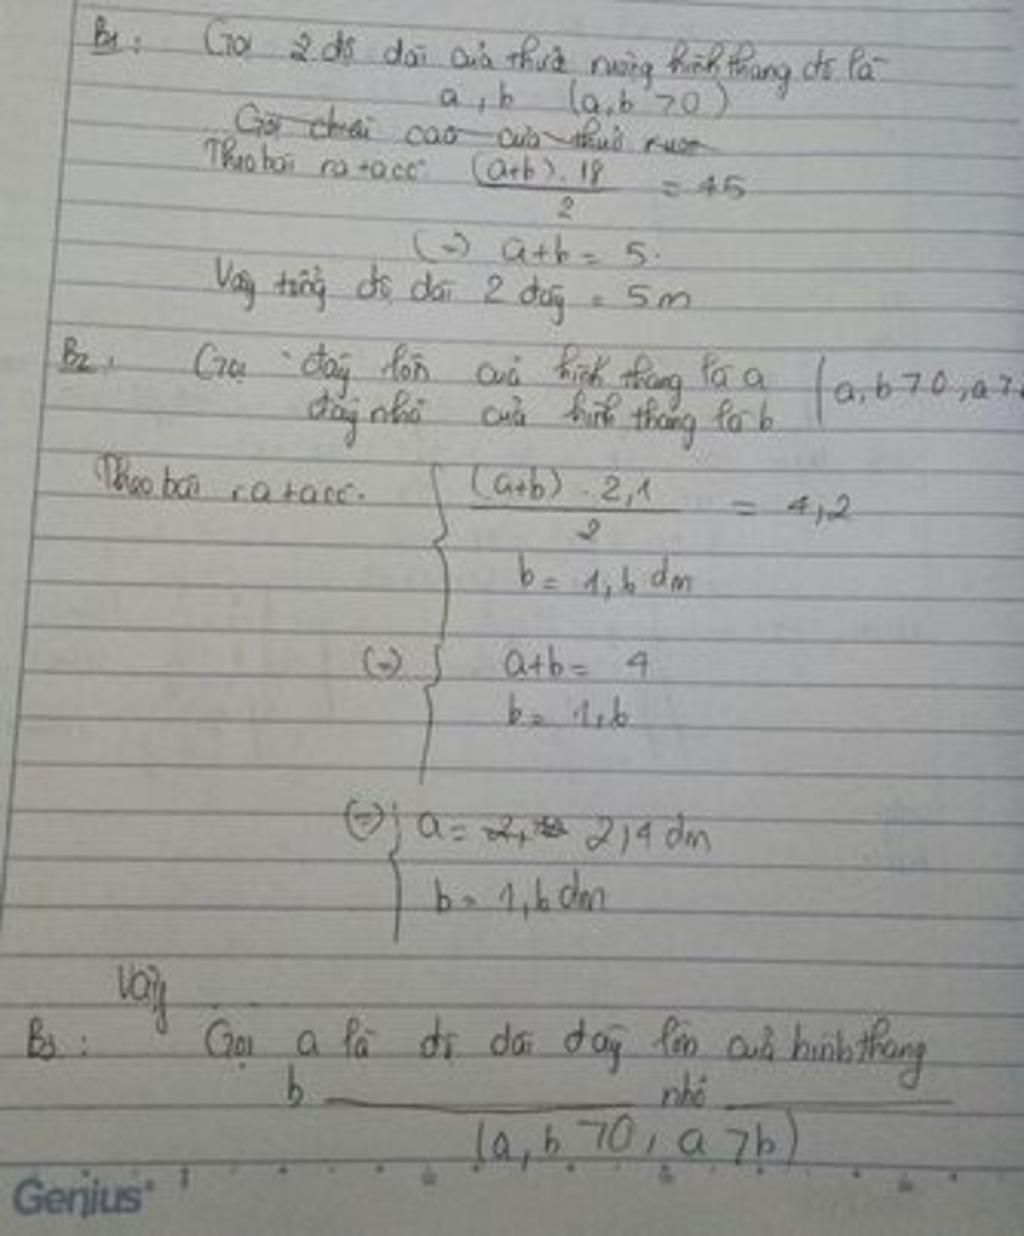 B1: Gọi 2 độ dài của thửa ruộng hình thang đó là
a, b (a,b >0)
Gọi chiều cao của thửa ruộn
Theo bài ra ta có (a+b).18/2 = 45
(=) a+b = 5.
Vậy tổng độ dài 2 đáy = 5m
B2: Gọi đáy lớn của hình thang là a (a,b >0, a>
đáy nhỏ của hình thang là b
Theo bài ra ta có. { (a+b).2,1/2 = 4,2
b = 1,6 dm
(=) { a+b = 4
b = 1,6
(=) { a = 2,4 dm
b = 1,6 dm
Vậy
B3: Gọi a là độ dài đáy lớn của hình thang
b ——— nhỏ ———
(a, b >0, a >b)
Genius